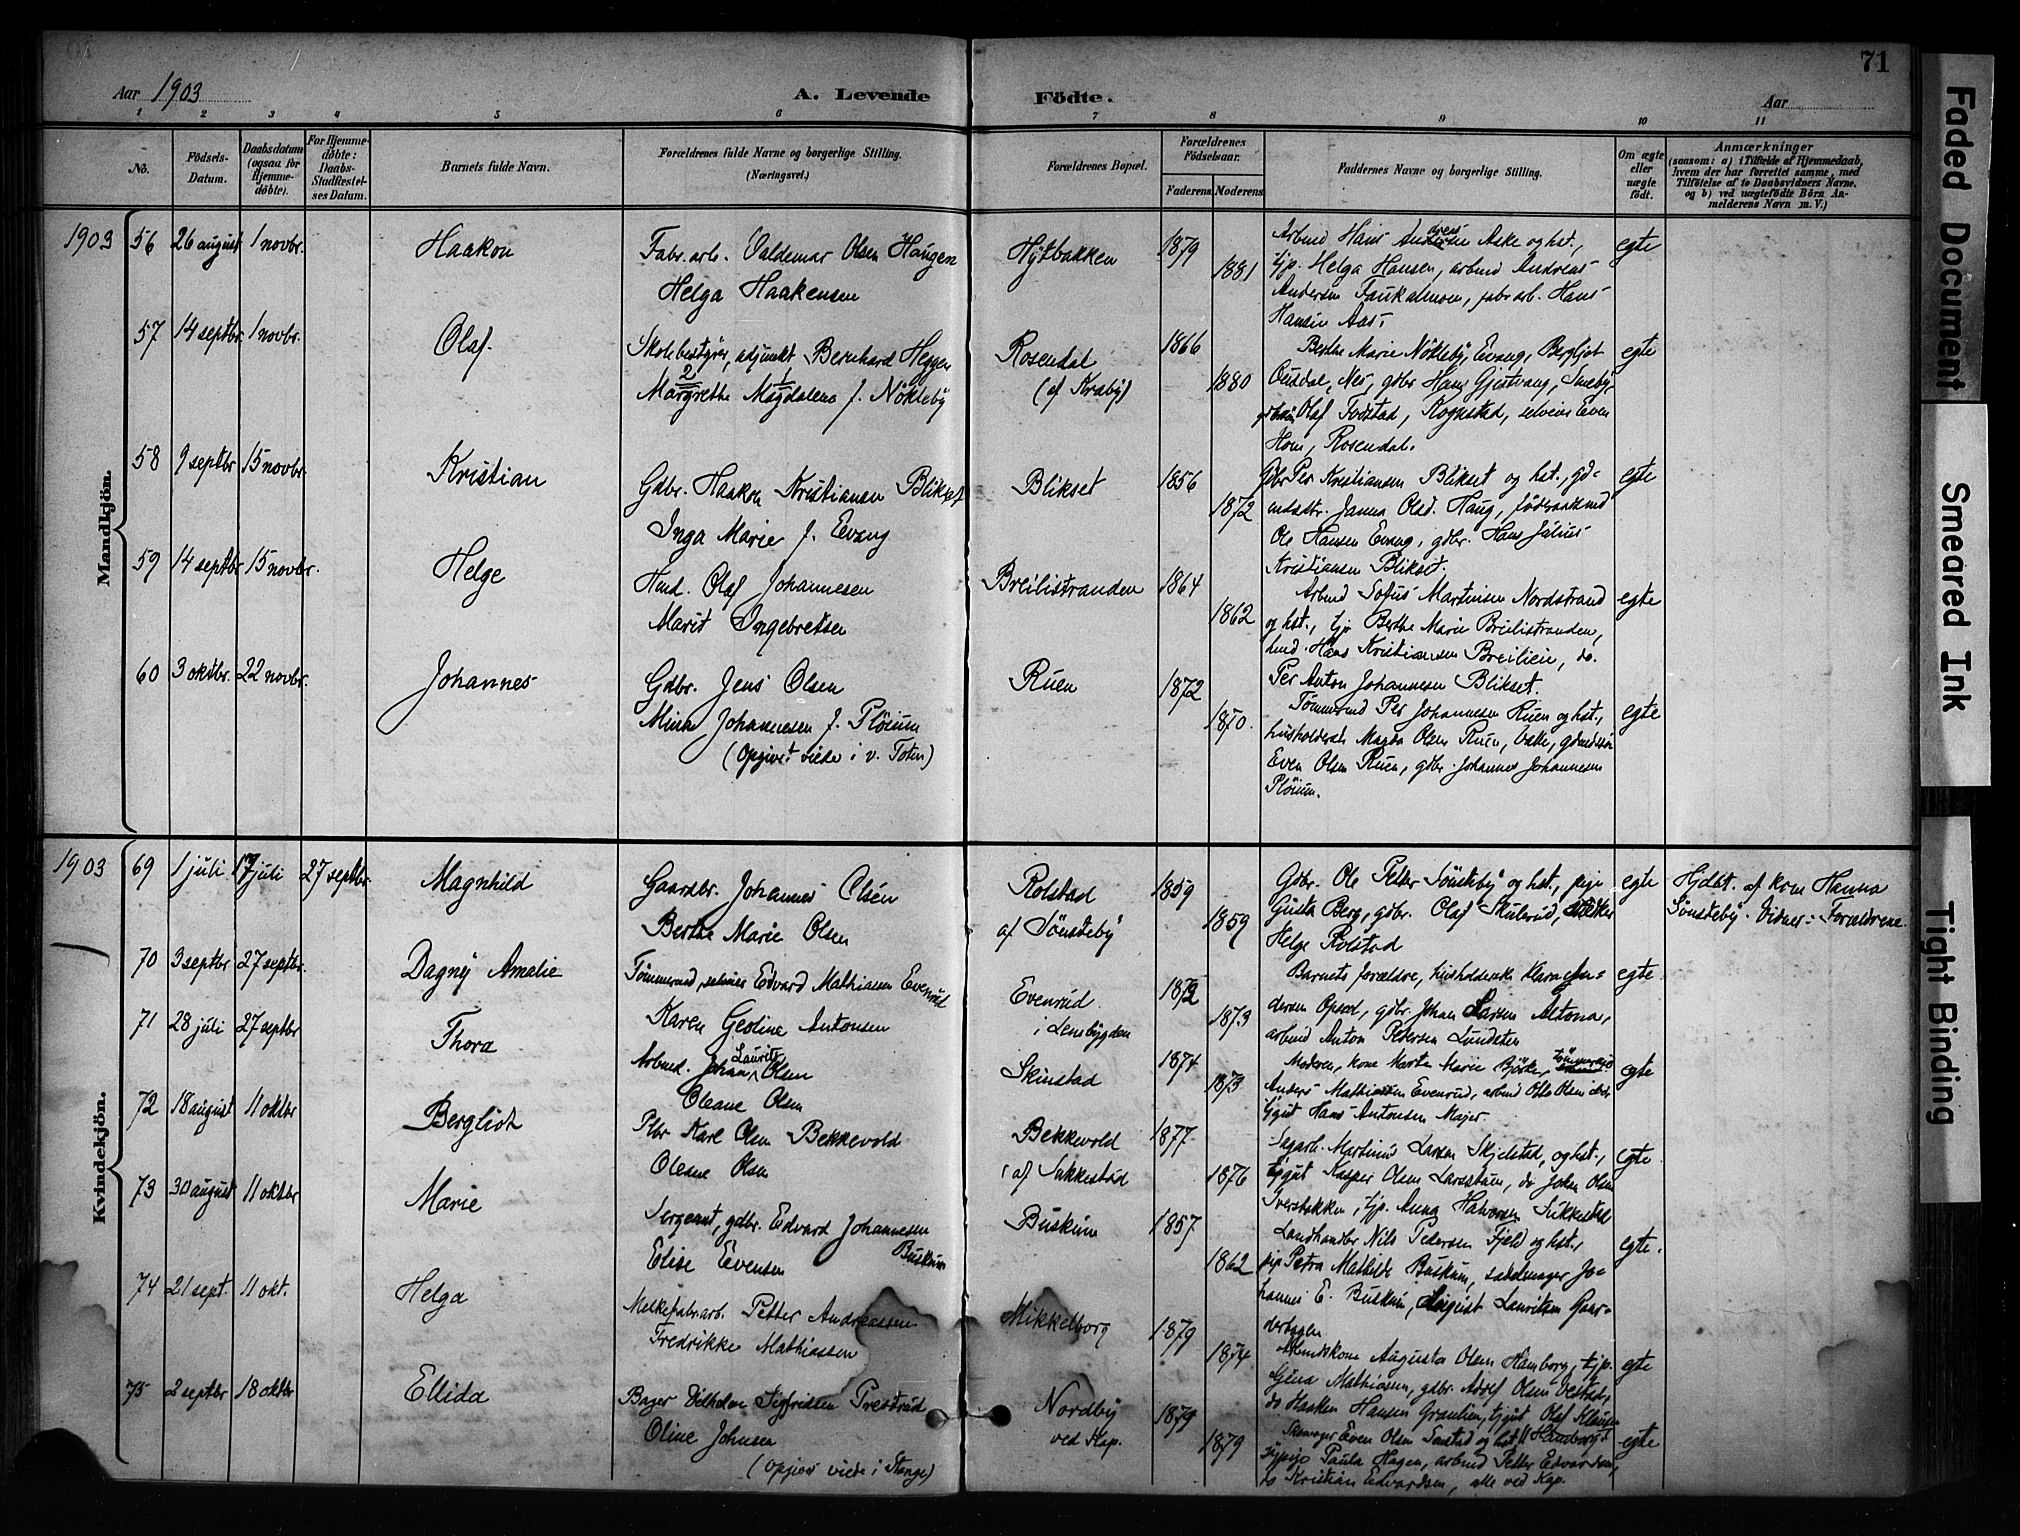 71
Aar 1903
A. Levende Födte.
Aar
1 2 3 4 5 6 7 8 9 10 11
No.
Födsels-Datum.
Daabsdatum (ogsaa for Hjemmedöbte).
For Hjemmedöbte: Daabs-Stadfæstelses Datum.
Barnets fulde Navn.
Forældrenes fulde Navne og borgerlige Stilling. (Næringsvei.)
Forældrenes Bopæl.
Forældrenes Födselsaar.
Faderens. Moderens.
Faddernes Navne og borgerlige Stilling.
Om ægte eller uægte födt.
Anmærkninger
(saasom: a) i Tilfælde af Hjemmedaab, hvem der har forrettet samme, med Tilföielse af to Daabsvidners Navne, og b) ved uægtefödte Börn Anmelderens Navn m. V.)
Mandkjön.
1903 56 26 august 1 novbr. Haakon
Fabr. arb. Valdemar Olsen Haugen
Helga Haakensen
Hytbakken 1879 1881
Arbmd Hans Aske og hst.,
tjp. Helga Hansen, arbmd Andreas
Andersen Faukalmoen, fabr arb. Hans
Hansen Aas,
egte
57 14 septbr. 1 novbr. Olaf
Skolebestyrer, adjunkt Bernhard Heggen
2 1
Margrethe Magdalena f. Nökleby
Rosendal
(af Kraby)
1866 1880
Berthe Marie Nökleby, Evang, Bergljot
Ousdal, Nes, gdbr Hans Gjestvang, Smeby,
Olaf Fodstad, Rognstad, selveier Even
Hom, Rosendal.
egte
58 9 septbr 15 novbr. Kristian
Gdbr. Haakon Kristiansen Blikset
Inga Marie f. Evang
Blikset 1856 1872
Gdbr Per Kristiansen Blikset og hst., gd-
Janna Olsd. Haug, föderaadsmd
Ole Hansen Evang, gdbr. Hans Julius
Kristiansen Blikset.
egte
59 14 septbr 15 novbr. Helge
Hmd. Olaf Johannesen
Marit Ingebretsen
Breilistranden 1864 1862
Arbmd Sofus Martinsen Nordstrand
og hst., tjp Berthe Marie Breilistranden,
hmd. Hans Kristiansen Breilieie, do.
Per Anton Johannesen Blikset.
egte
60 3 oktbr. 22 novbr. Johannes
Gdbr. Jens Olsen
Mina Johannesen f. Plöium
(opgivet viede i v. Toten)
Ruen 1872 1870.
Tömmermd Per Johannesen Ruen og hst.,
husholdersk Magda Olsen Ruen,
Even Olsen Ruen, gdbr. Johannes Johannesen
Plöium.
egte
Kvindekjön.
1903 69 1 juli 17 juli 27 septbr. Magnhild
Gaardbr. Johannes Olsen
Berthe Marie Olsen
Rolstad
af Sönsteby
1859 1859
Gdbr. Ole Petter Sönsteby og hst., pige
Gusta Berg, gdbr. Olaf Skulerud,
Helge Rolstad
egte
Hjdbt. af kone Hanna
Sönsteby. Vidner: Forældrene.
70 3 septbr 27 septbr. Dagny Amalie
Tömmermd, selveier Edvard Mathiasen Evenrud
Karen Geoline Antonsen
Evenrud
i Lensbygden
1872 1873
Barnets forældre, husholderske Klara An-
dersen Opsad, gdbr. Johan Larsen Altona,
arbmd Anton Pedersen Lundsten
egte
71 28 juli 27 septbr Thora
Arbmd. Johan Laurits Olsen
Oleane Olsen
Skinstad 1874 1873
Moderen, kone Marte Marie Björke, tömmermd
Anders Mathiasen Evenrud, arbmd Otto Olsen
tjgut Hans Antonsen Majer
egte
72 18 august 11 oktbr Bergliot
Plbr Karl Olsen Bekkevold
Oleane Olsen
Bekkevold
af Sukkestad
1877 1876
Sagarb. Martinus Larsen Skjelstad, og hst.,
tjgut Kasper Olsen Larestuen, do Johan Olsen
Iversbakken, tjp. Anna Halvorsen Sukkestad
egte
73 30 august 11 oktbr Marie
Sergeant, gdbr. Edvard Johannesen
Buskum
Elise Evensen
Buskum 1857 1862
Landhandler Nils Pedersen Fjeld og hst.,
pige Petra Mathilde Buskum, sadelmager Jo-
hannes E. Buskum, August Lauritsen Gaar-
derhagen
egte.
74 21 sept. 11 okt. Helga
Melkefabr.arb. Petter Andreassen
Fredrikke Mathiassen
Mikkelborg 1879 1874
Augusta Olsen Hamborg, tjp.
Gina Mathiasen, gdbr. Adolf Olsen Vestad,
do Haaken Hansen Graulien, tjgut Olaf Klausen
Hamborg
egte
75 2 septbr 18 oktbr Ellida
Bager Vilhelm Sigfridsen Prestrud
Oline Johnsen
(opgives viede i Stange)
Nordby
ved Kap.
1879 1879
Skomager Even Olsen Smstad og hst.
sypige Paula Hagen, arbmd Petter Edvardsen,
do Kristian Edvardsen, alle ved Kap.
egte
Faded Document
Smeared Ink
Tight Binding